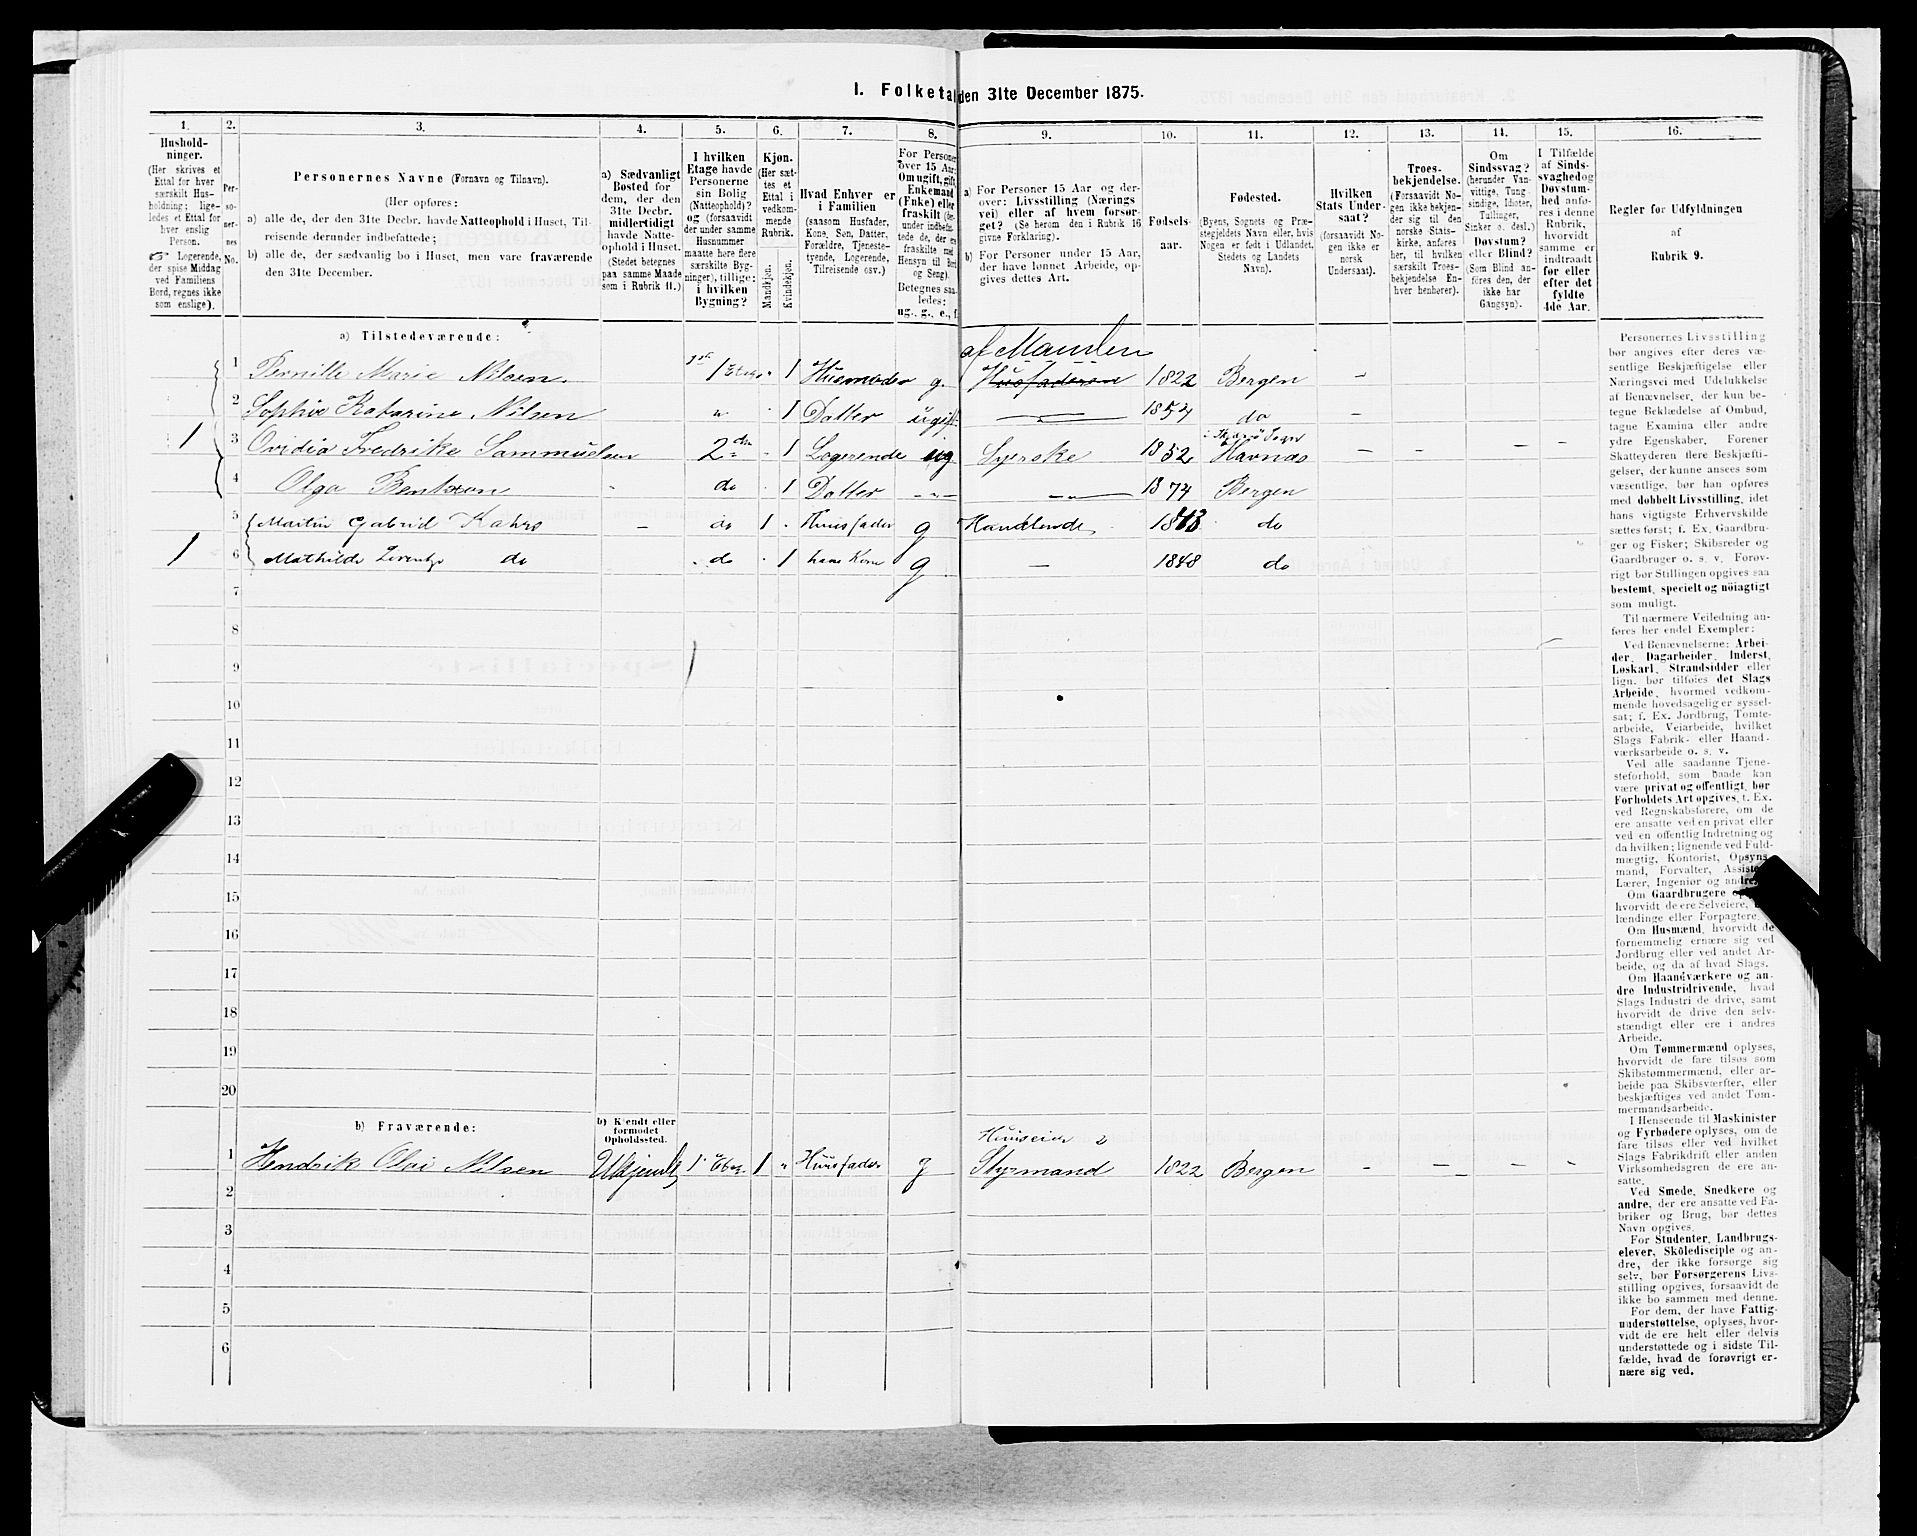 I. Folketal den 31te December 1875.
1. 2. 3. 4. 5. 6. 7. 8. 9. 10. 11. 12. 13. 14. 15. 16.
Hushold-
ninger.
(Her skrives et
Ettal for hver
særskilt Hus-
holdning; lige-
ledes et Ettal for
hver enslig
Person.
Logerende,
der spise Middag
ved Familiens
Bord, regnes ikke
som enslige).
Per-
so-
ner-
nes
No.
Personernes Navne (Fornavn og Tilnavn).
(Her opføres:
a) alle de, der den 31te Decbr. havde Natteophold i Huset, Til-
reisende derunder indbefattede;
b) alle de, der sædvanlig bo i Huset, men vare fraværende
den 31te December.
a) Sædvanligt
Bosted for
dem, der den
31te Decbr.
midlertidigt
havde Natte-
ophold i Huset.
(Stedet betegnes
paa samme Maade
som i Rubrik 11.)
I hvilken
Etage havde
Personerne
sin Bolig
(Natteophold)?
og (forsaavidt
der under samme
Husnummer
maatte høre flere
særskilte Byg-
ninger), tillige:
i hvilken
Bygning?
Kjøn.
(Her sæt-
tes et
Ettal i
vedkom-
mende
Rubrik.
Mandkjøn.
Kvindekjøn.
Hvad Enhver er
i Familien
(saasom Husfader,
Kone, Søn, Datter,
Forældre, Tjeneste-
tyende, Logerende,
Tilreisende osv.)
For Personer
over 15 Aar:
Om ugift, gift,
Enkemand
(Enke) eller
fraskilt
Betegnes saa-
ledes:
ug., g., e., f.
a) For Personer 15 Aar og der-
over: Livsstilling (Nærings
vei) eller af hvem forsør-
get? (Se herom den i Rubrik 16
givne Forklaring).
b) For Personer under 15 Aar,
der have lønnet Arbeide, op-
gives dettes Art.
Fødsels-
aar.
Fødested.
(Byens, Sognets og Præ-
stegjeldets Navn eller, hvis
Nogen er født i Udlandet,
Stedets og Landets
Navn).
Hvilken
Stats Under-
saat?
(forsaavidt No-
gen ikke er
norsk
Undersaat).
Troes-
bekjendelse.
(Forsaavidt No-
gen ikke bekjen-
der sig til den
norske Stats-
kirke, anføres
her, til hvilken
særskilt Troes-
bekjendelse En-
hver henhører).
Om
Sindssvag?
(herunder Van-
vittige, Tung-
sindige, Idioter,
Tullinger,
Sinker o. desl.)
Døvstum?
eller Blind?
(Som Blind an-
føres den, der
ikke har
Gangsyn).
I Tilfælde
af Sinds-
svaghed og
Døvstum-
hed anfø-
res i denne
Rubrik,
hvorvidt
samme er
indtraadt
før eller
efter det
fyldte
4de Aar.
Regler for Udfyldningen
af
Rubrik 9.
a) Tilstedeværende:
af Manden
1 Pernille Marie Nilsen 1 Etage " 1 Husmoder g. Husfaderen 1822 Bergen –
2 Sophie Katarine Nilsen " 1 Datter ugift — 1854 do –
1 3 Ovidia Fredrike Sammuelsen 2den 1 Logerende ug Syerske 1852 Havnas – – – –
4 Olga Bentson do 1 Datter –"– –"– 1874 Bergen
5 Martin Gabriel Kahrs – do 1 Huusfader g Handlende 1843 do
1 6 Mathilde do do 1 hans Kone g – 1848 do
7
8
9
10
11
12
13
14
15
16
17
18
19
20
b) Fraværende:
b) Kjendt eller
formodet
Opholdssted.
Huuseier
1 Hendrik Olai Nilsen Ukjendt 1 Etag. 1 " Huusfader g Styrmand 1822 Bergen – – – –
2
3
4
5
6
Personernes Livsstilling
bør angives efter deres væ-
sentlige Beskjæftigelse eller
Næringsvei med Udelukkelse
af Benævnelser, der kun be-
tegne Beklædelse af Ombud,
tagne Examina eller andre
ydre Egenskaber. Forener
Skatteyderen flere Beskjæfti-
gelser, der kunne ansees som
væsentlige, bør han opføres
med dobbelt Livsstilling, idet
hans vigtigste Erhvervskilde
sættes først; f. Ex. Gaardbru-
ger og Fisker; Skibsreder og
Gaardbruger o. s. v. Forøv-
rigt bør Stillingen opgives saa
bestemt, specielt og nöiagtigt
som muligt.
Til nærmere Veiledning an-
føres her endel Exempler:
Ved Benævnelserne: Arbei-
der, Dagarbeider, Inderst,
Løskarl, Strandsidder eller
lign. bør tilføies det Slags
Arbeide, hvormed vedkom-
mende hovedsagelig er syssel-
sat; f. Ex. Jordbrug, Tomte-
arbeide, Veiarbeide, hvilket
Slags Fabrik- eller Haand-
værksarbeide o. s. v.
Ved alle saadanne Tjene-
steforhold, som baade kan
være privat og offentligt, bør
Forholdets Art opgives, t. Ex.
ved Regnskabsførere, om de
ere ansatte ved en privat eller
ved en offentlig Indretning og
da hvilken; lignende ved Fuld-
mægtig, Kontorist, Opsyns-
mand, Forvalter,
Lærer, Ingeniør og
Om Gaardbrugere
hvorvidt de ere Selveiere,
lændinge eller Forpagtere.
Om Husmænd, hvorvidt de
fornemmelig ernære sig ved
Jordbrug eller ved andet Ar-
beide, og da af hvad Slags.
Om Haandværkere og an-
dre Industridrivende, hvad
Slags Industri de drive, samt
hvorvidt de drive den selv-
stændigt eller ere i andres
Arbeide.
Om Tømmermænd oplyses,
hvorvidt de fare tilsøs som
Skibstømmermænd, eller ar-
beide paa Skibsværfter, eller
beskjæftiges ved andet Tøm-
mermandsarbeide.
I Henseende til Maskinister
og Fyrbødere oplyses, om de
fare tilsøs eller ved hvilket
Slags Fabrikdrift eller anden
Virksomhedsgren de ere an-
satte.
Ved Smede, Snedkere og
andre, der ere ansatte ved Fa-
briker og Brug, bør dettes
Navn opgives.
For Studenter, Landbrugs-
elever, Skoledisciple og an-
dre, der ikke forsørge sig
selv, bør Forsørgerens Livs-
stilling opgives, forsaavidt de
ikke bo sammen med denne.
For dem, der have Fattig-
understøttelse, oplyses, hvor-
vidt de ere helt eller delvis
understøttede og i sidste Til-
fælde, hvad de forøvrigt er-
nære sig ved.